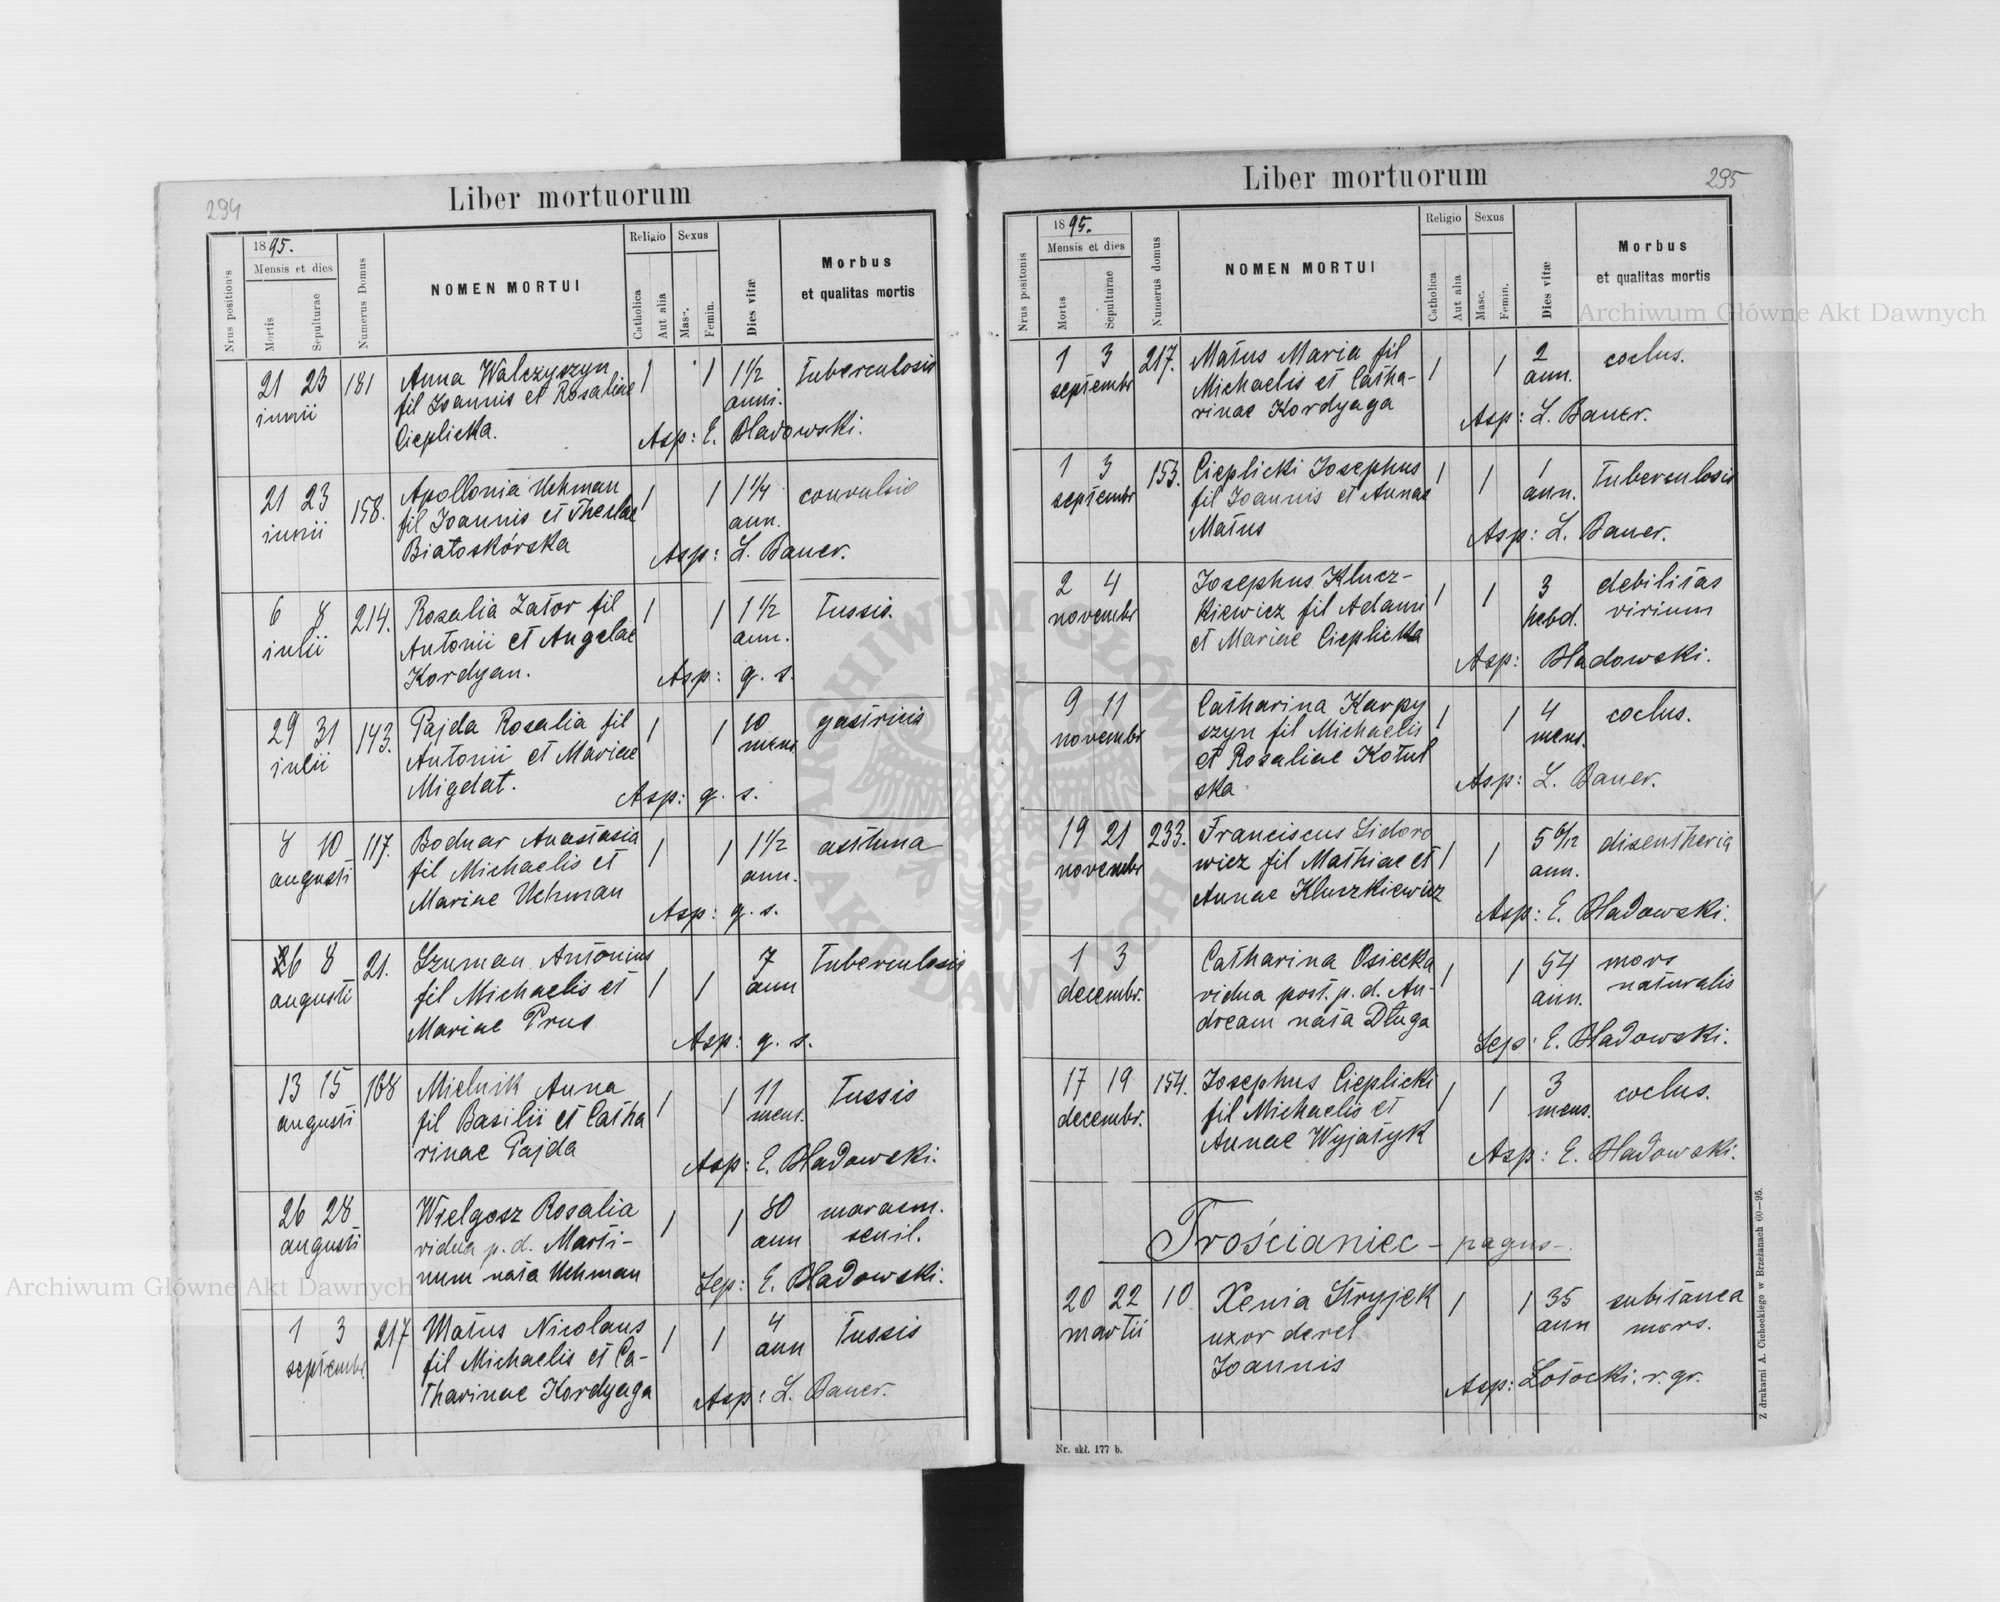 294
Liber mortuorum
1895.
Mensis et dies
Nrus positionis
Mortis
Sepulturae
Numerus Domus
NOMEN MORTUI
Religio
Catholica
Aut alia
Sexus
Masc.
Femin.
Dies vitæ
Morbus
et qualitas mortis
21 23 181 Anna Walczyszyn 1 1 1½ tuberculosis
iunii fil Joannis et Rosaliae anni.
Cieplicka. Asp: E. Bładowski.
21 23 158. Apollonia Uchman 1 1 1¼ convulsio
iunii fil Joannis et Theclae ann.
Białoskórska Asp: L. Bauer.
6 8 214. Rosalia Zator fil 1 1 1½ tussis.
iulii Antonii et Angelae ann.
Kordyan. Asp: q. s.
29 31 143. Pajda Rosalia fil 1 1 10 gastricis
iulii Antonii et Mariae mens.
Migdat. Asp: q. s.
8 10 117. Bodnar Anastasia 1 1 1½ asthma
augusti fil Michaelis et ann.
Mariae Uchman Asp: q. s.
26 8 21. Szuman Antonius 1 1 7 tuberculosis
augusti fil Michaelis et ann
Mariae Prus Asp: q. s.
13 15 168 Mielnik Anna 1 1 11 tussis
augusti fil Basilii et Catha mens.
rinae Pajda Asp: E. Bładowski.
26 28 Wielgosz Rosalia 1 1 80 marasm.
augusti vidua p. d. Marti- ann senil.
num nata Uchman Sep: E. Bładowski.
1 3 217 Matus Nicolaus 1 1 4 tussis
septembr. fil Michaelis et Ca- ann
tharinae Kordyaga Asp: L. Bauer.
Liber mortuorum
295
1895.
Mensis et dies
Nrus positonis
Mortis
Sepulturae
Numerus domus
NOMEN MORTUI
Religio
Catholica
Aut alia
Sexus
Masc.
Femin.
Dies vitæ
Morbus
et qualitas mortis
1 3 217. Matus Maria fil 1 1 2 coclus.
septembr Michaelis et Catha- ann.
rinae Kordyaga Asp: L. Bauer.
1 3 153. Cieplicki Josephus 1 1 1 tuberculosis
septembr fil Joannis et Annae ann.
Matus Asp: L. Bauer.
2 4 Josephus Klucz- 1 1 3 debilitas
novembr kiewicz fil Adami hebd. virium
et Mariae Cieplicka Asp: Bładowski.
9 11 Catharina Karpy 1 1 4 coclus.
novembr szyn fil Michaelis mens.
et Rosaliae Kotul Asp: L. Bauer.
ska
19 21 233. Franciscus Sidoro 1 1 5 6/12 disentheria
novembr wicz fil Mathiae et ann.
Annae Kluszkiewicz Asp: E. Bładowski.
1 3 Catharina Osiecka 1 1 54 mors
decembr. vidua post. p. d. An- ann. naturalis
dream nata Długa Sep: E. Bładowski.
17 19 154. Josephus Cieplicki 1 1 3 coclus.
decembr. fil Michaelis et mens.
Annae Wyjatyk Asp: E. Bładowski.
Trościaniec - pagus -
20 22 10 Xenia Stryjek 1 1 35 subitanea
martii uxor derel ann mors.
Joannis Asp: Łotocki. r. gr.
Nr. skł. 177 b.
Z drukarni A. Cichockiego w Brzeżanach 60—95.
Archiwum Główne Akt Dawnych
Archiwum Główne Akt Dawnych
ARCHIWUM GŁÓWNE AKT DAWNYCH